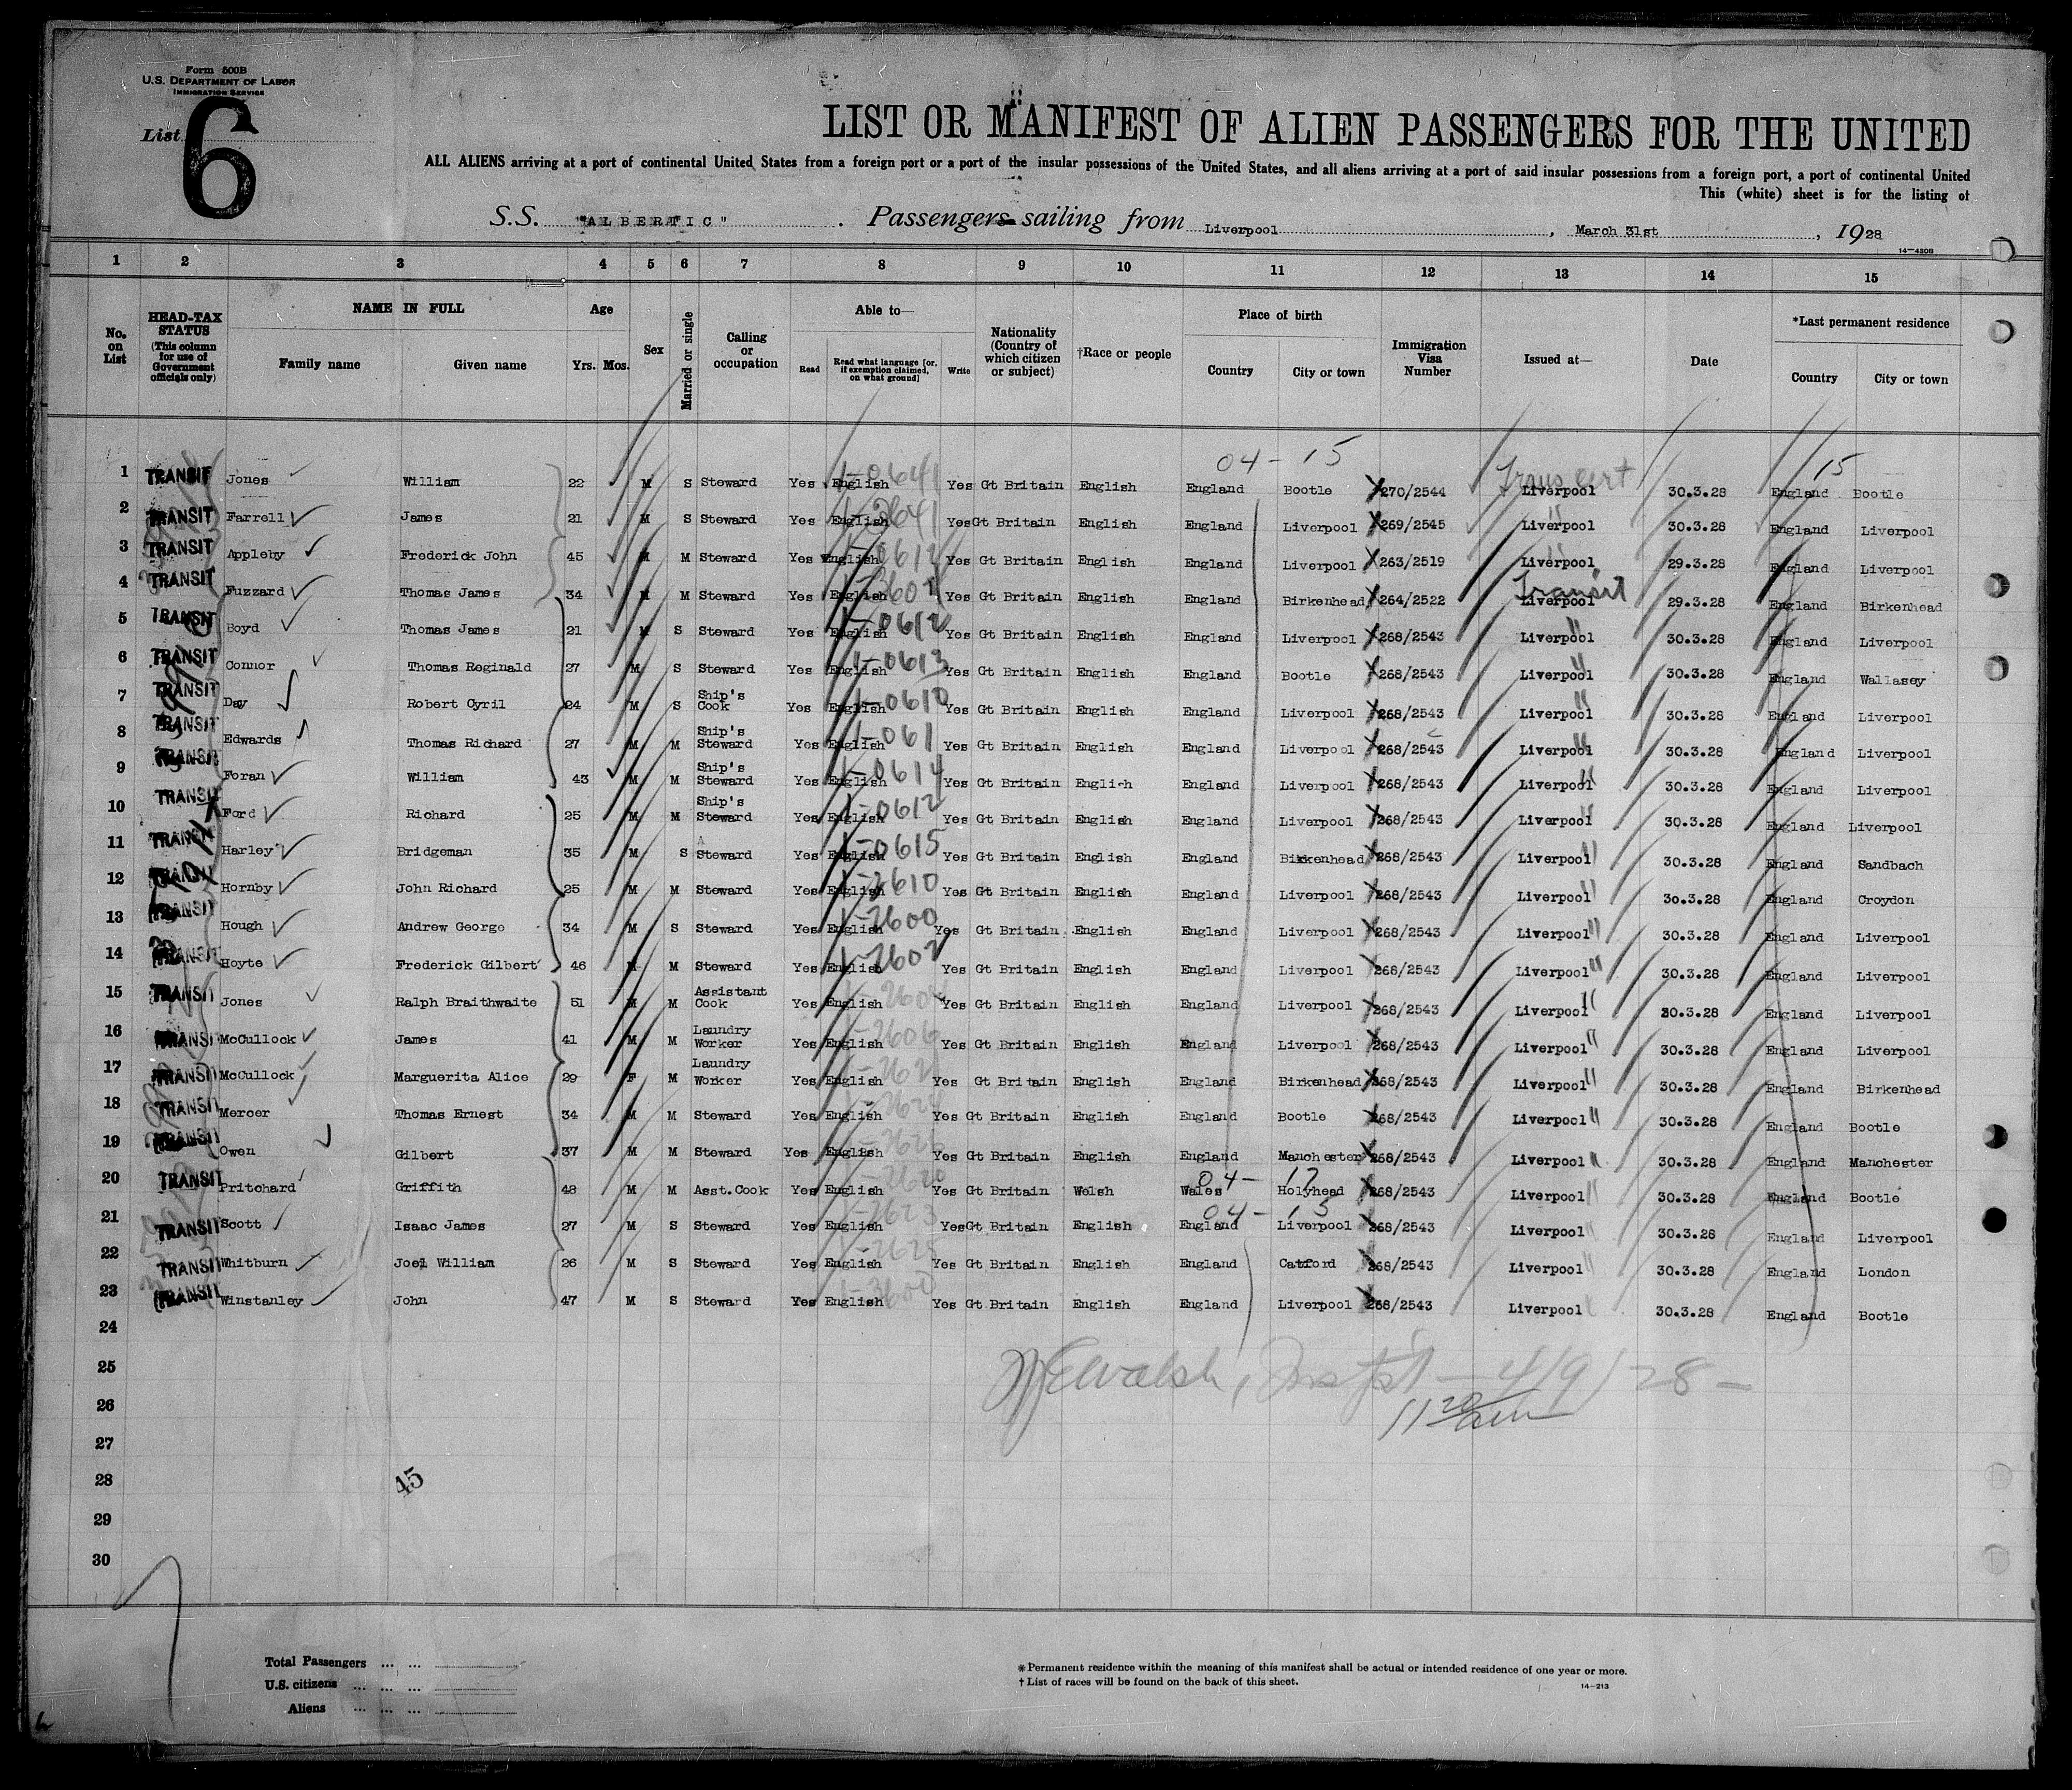 Form 500B
U.S. DEPARTMENT OF LABOR
IMMIGRATION SERVICE
List 6
LIST OR MANIFEST OF ALIEN PASSENGERS FOR THE UNITED
ALL ALIENS arriving at a port of continental United States from a foreign port or a port of the insular possessions of the United States, and all aliens arriving at a port of said insular possessions from a foreign port, a port of continental United
This (white) sheet is for the listing of
S.S. "ALBERTIC". Passengers sailing from Liverpool, March 31st, 1928
14-4308
1 2 3 4 5 6 7 8 9 10 11 12 13 14 15
No. on List
HEAD-TAX STATUS (This column for use of Government officials only)
NAME IN FULL
Family name
Given name
Age
Yrs. Mos.
Sex
Married or single
Calling or occupation
Able to—
Read
Read what language [or, if exemption claimed, on what ground]
Write
Nationality (Country of which citizen or subject)
†Race or people
Place of birth
Country
City or town
Immigration Visa Number
Issued at—
Date
*Last permanent residence
Country
City or town
04-15 Trans cert 15
1 TRANSIT Jones William 22 M S Steward Yes English Yes Gt Britain English England Bootle 270/2544 Liverpool 30.3.28 England Bootle
2 TRANSIT Farrell James 21 M S Steward Yes English Yes Gt Britain English England Liverpool 269/2545 Liverpool 30.3.28 England Liverpool
3 TRANSIT Appleby Frederick John 45 M M Steward Yes English Yes Gt Britain English England Liverpool 263/2519 Liverpool 29.3.28 England Liverpool
Transit
4 TRANSIT Fuzzard Thomas James 34 M M Steward Yes English Yes Gt Britain English England Birkenhead 264/2522 Liverpool 29.3.28 England Birkenhead
5 TRANSIT Boyd Thomas James 21 M S Steward Yes English 1-0612 Yes Gt Britain English England Liverpool 268/2543 Liverpool 30.3.28 England Liverpool
6 TRANSIT Connor Thomas Reginald 27 M S Steward Yes English 1-0613 Yes Gt Britain English England Bootle 268/2543 Liverpool 30.3.28 England Wallasey
7 TRANSIT Day Robert Cyril 24 M S Ship's Cook Yes English 1-0610 Yes Gt Britain English England Liverpool 268/2543 Liverpool 30.3.28 England Liverpool
8 TRANSIT Edwards Thomas Richard 27 M M Ship's Steward Yes English 1-061 Yes Gt Britain English England Liverpool 268/2543 Liverpool 30.3.28 England Liverpool
9 TRANSIT Foran William 43 M M Ship's Steward Yes English 1-0614 Yes Gt Britain English England Liverpool 268/2543 Liverpool 30.3.28 England Liverpool
10 TRANSIT Ford Richard 25 M M Ship's Steward Yes English 1-0612 Yes Gt Britain English England Liverpool 268/2543 Liverpool 30.3.28 England Liverpool
11 TRANSIT Harley Bridgeman 35 M S Steward Yes English 1-0615 Yes Gt Britain English England Birkenhead 268/2543 Liverpool 30.3.28 England Sandbach
12 TRANSIT Hornby John Richard 25 M M Steward Yes English 1-2610 Yes Gt Britain English England Liverpool 268/2543 Liverpool 30.3.28 England Croydon
13 TRANSIT Hough Andrew George 34 M S Steward Yes English 1-2600 Yes Gt Britain English England Liverpool 268/2543 Liverpool 30.3.28 England Liverpool
14 TRANSIT Hoyte Frederick Gilbert 46 M M Steward Yes English 1-2602 Yes Gt Britain English England Liverpool 268/2543 Liverpool 30.3.28 England Liverpool
15 TRANSIT Jones Ralph Braithwaite 51 M M Assistant Cook Yes English Yes Gt Britain English England Liverpool 268/2543 Liverpool 30.3.28 England Liverpool
16 TRANSIT McCullock James 41 M M Laundry Worker Yes English Yes Gt Britain English England Liverpool 268/2543 Liverpool 30.3.28 England Liverpool
17 TRANSIT McCullock Marguerita Alice 29 F M Laundry Worker Yes English Yes Gt Britain English England Birkenhead 268/2543 Liverpool 30.3.28 England Birkenhead
18 TRANSIT Mercer Thomas Ernest 34 M M Steward Yes English Yes Gt Britain English England Bootle 268/2543 Liverpool 30.3.28 England Bootle
19 TRANSIT Owen Gilbert 37 M M Steward Yes English Yes Gt Britain English England Manchester 268/2543 Liverpool 30.3.28 England Manchester
04-17
20 TRANSIT Pritchard Griffith 48 M M Asst.Cook Yes English Yes Gt Britain Welsh Wales Holyhead 268/2543 Liverpool 30.3.28 England Bootle
04-15
21 TRANSIT Scott Isaac James 27 M S Steward Yes English Yes Gt Britain English England Liverpool 268/2543 Liverpool 30.3.28 England Liverpool
22 TRANSIT Whitburn Joel William 26 M S Steward Yes English Yes Gt Britain English England Catford 268/2543 Liverpool 30.3.28 England London
23 TRANSIT Winstanley John 47 M S Steward Yes English Yes Gt Britain English England Liverpool 268/2543 Liverpool 30.3.28 England Bootle
24
25 Walsh, 4/9/28
26 11 20 am
27
28 45
29
30
Total Passengers ... ...
U.S. citizens ... ... ...
Aliens ... ... ...
*Permanent residence within the meaning of this manifest shall be actual or intended residence of one year or more.
†List of races will be found on the back of this sheet.
14-213
6